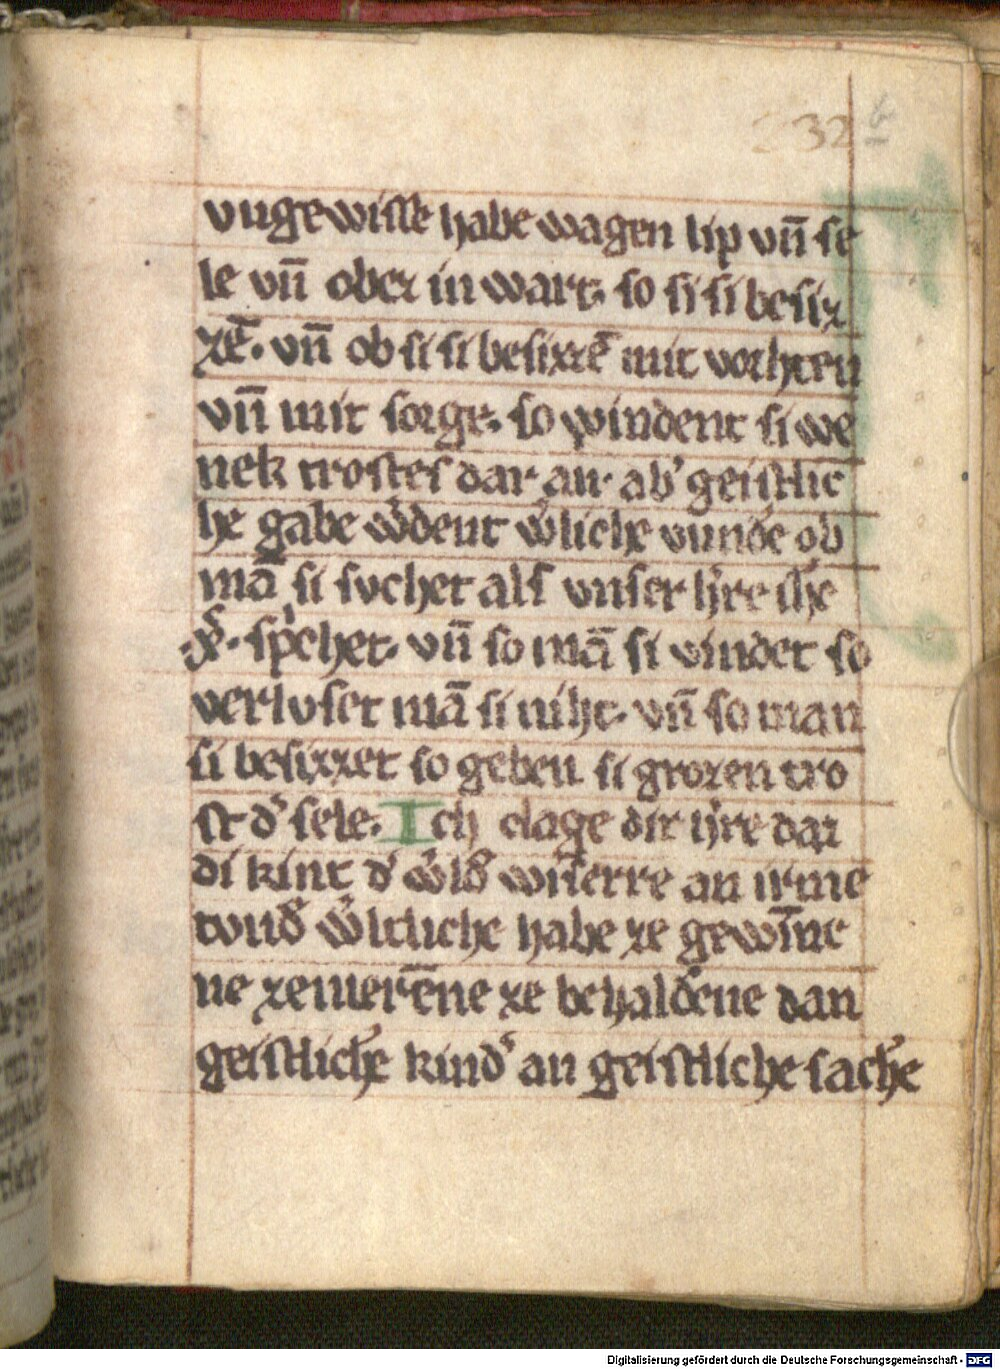 32 b
vngewisse habe wagen lip vn̄ se
le vn̄ ober in wart. so si si besiz
zē. vn̄ ob si si besizzē mit vorhten
vn̄ mit sorge. so windent si we
nek trostes dar an. ab' geistlic
he gabe w'dent w'liche vundē ob
mā si svchet als vnser h're ih'c
x̄. sp'chet. vn̄ so mā si vindet so
verlvset mā si niht. vn̄ so man
si besizzet so geben si grozen tro
st d' sele. Ich clage dir h're daz
di kint d' w'ld wis'erre an irme
tvnd' w'ltliche habe ze gewīne
ne zemerēne ze behaldene dan
geistliche kind' an geistliche sache
Digitalisierung gefördert durch die Deutsche Forschungsgemeinschaft - DFG